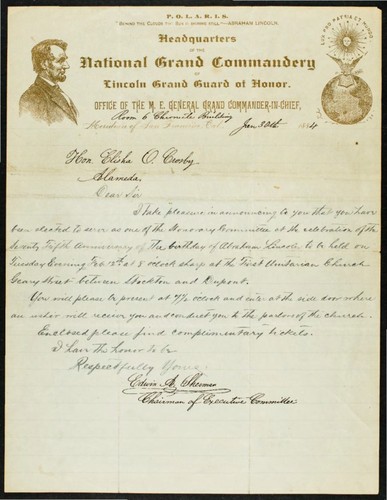 P.O.L.A.R.I.S.
"BEHIND THE CLOUDS THE SUN IS SHINING STILL." —ABRAHAM LINCOLN.
Headquarters
OF THE
National Grand Commandery
OF
Lincoln Grand Guard of Honor.
OFFICE OF THE M. E. GENERAL GRAND COMMANDER-IN-CHIEF,
LUX PRO PATRIA ET HONOR
Room 6 Chronicle Building
San Francisco, Cal. Jan 30th 1884
Hon. Elisha O. Crosby
Alameda.
Dear Sir
I take pleasure in announcing to you that you have
been elected to serve as one of the Honorary Committee at the celebration of the
Seventy Fifth Anniversary of the birthday of Abraham Lincoln to be held on
Tuesday Evening Feb. 12th at 8 o'clock sharp at the First Unitarian Church
Geary Street between Stockton and Dupont.
You will please be present at 7½ o'clock and enter at the side door where
an usher will receive you and conduct you to the parlors of the church.
Enclosed please find complimentary tickets.
I have the honor to be
Respectfully Yours
Edwin A. Sherman
Chairman of Executive Committee